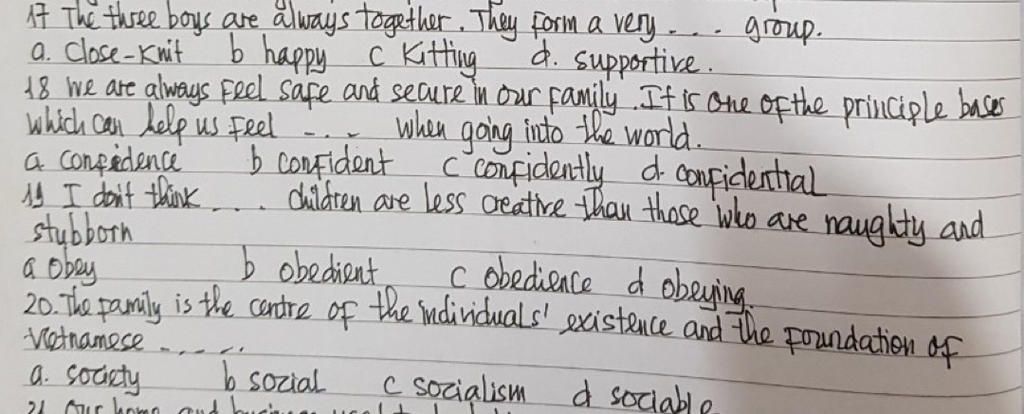 17 The three boys are always together. They form a very ... group.
a. Close-Knit b happy c Kitting d. supportive.
18 We are always Feel safe and secure in our family. It is one of the principle bases
which can help us Feel .... when going into the world.
a confidence b confident c confidently d. confidential
19 I don't think .... children are less creative than those who are naughty and
stubborn
a obey b obedient c obedience d obeying.
20. The family is the centre of the individuals' existence and the foundation of
Vietnamese .....
a. society b sozial c sozialism d sociable
21 Our home and